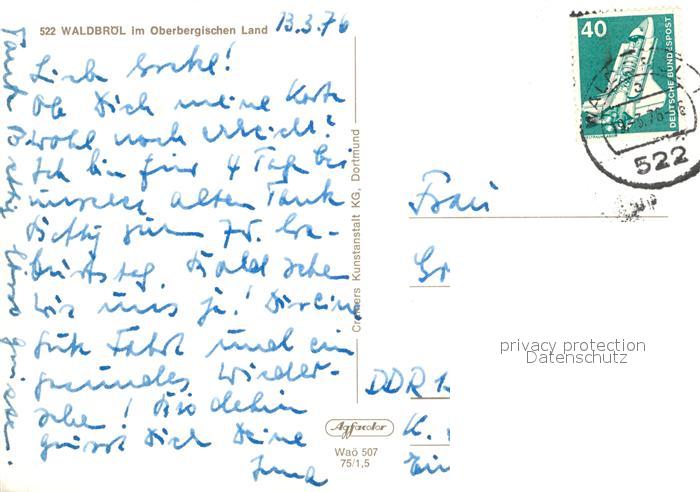 522 WALDBRÖL im Oberbergischen Land
13.3.76
Liebe Gretel!
Ob Dich meine Karte
wohl noch erreicht?
Ich bin für 4 Tage bei
unserer alten Tante
Betty zum 75. Ge-
burtstag. Bald sehen
wir uns ja! Dir eine
gute Fahrt und ein
gesundes Wieder-
sehen! Bis dahin
grüsst Dich Deine
Irma
Tante Betty lässt grüssen.
Cramers Kunstanstalt KG, Dortmund
Agfacolor
Waö 507
75/1,5
40
DEUTSCHE BUNDESPOST
522
Frau
Gr
privacy protection
Datenschutz
DDR 1
K.